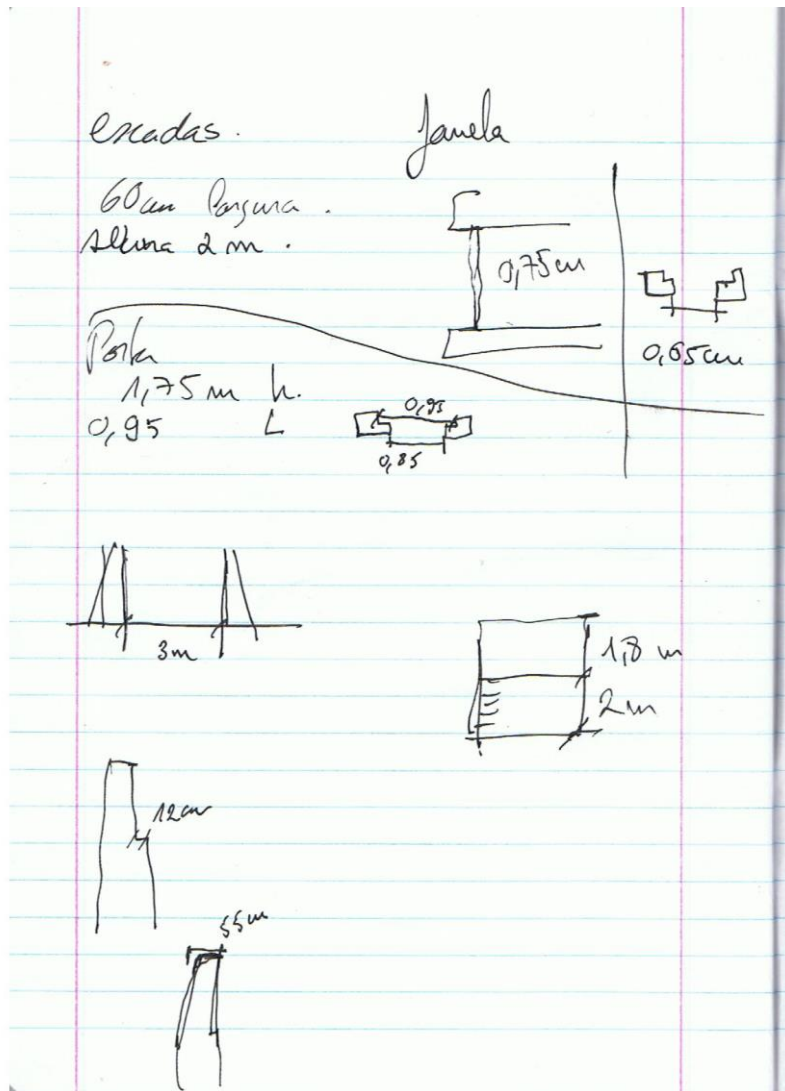 escadas.
60cm largura.
Altura 2 m.
Janela
0,75cm
0,65cm
Porta
1,75 m h.
0,95 L
0,95
0,85
3m
1,8 m
2m
12cm
55cm